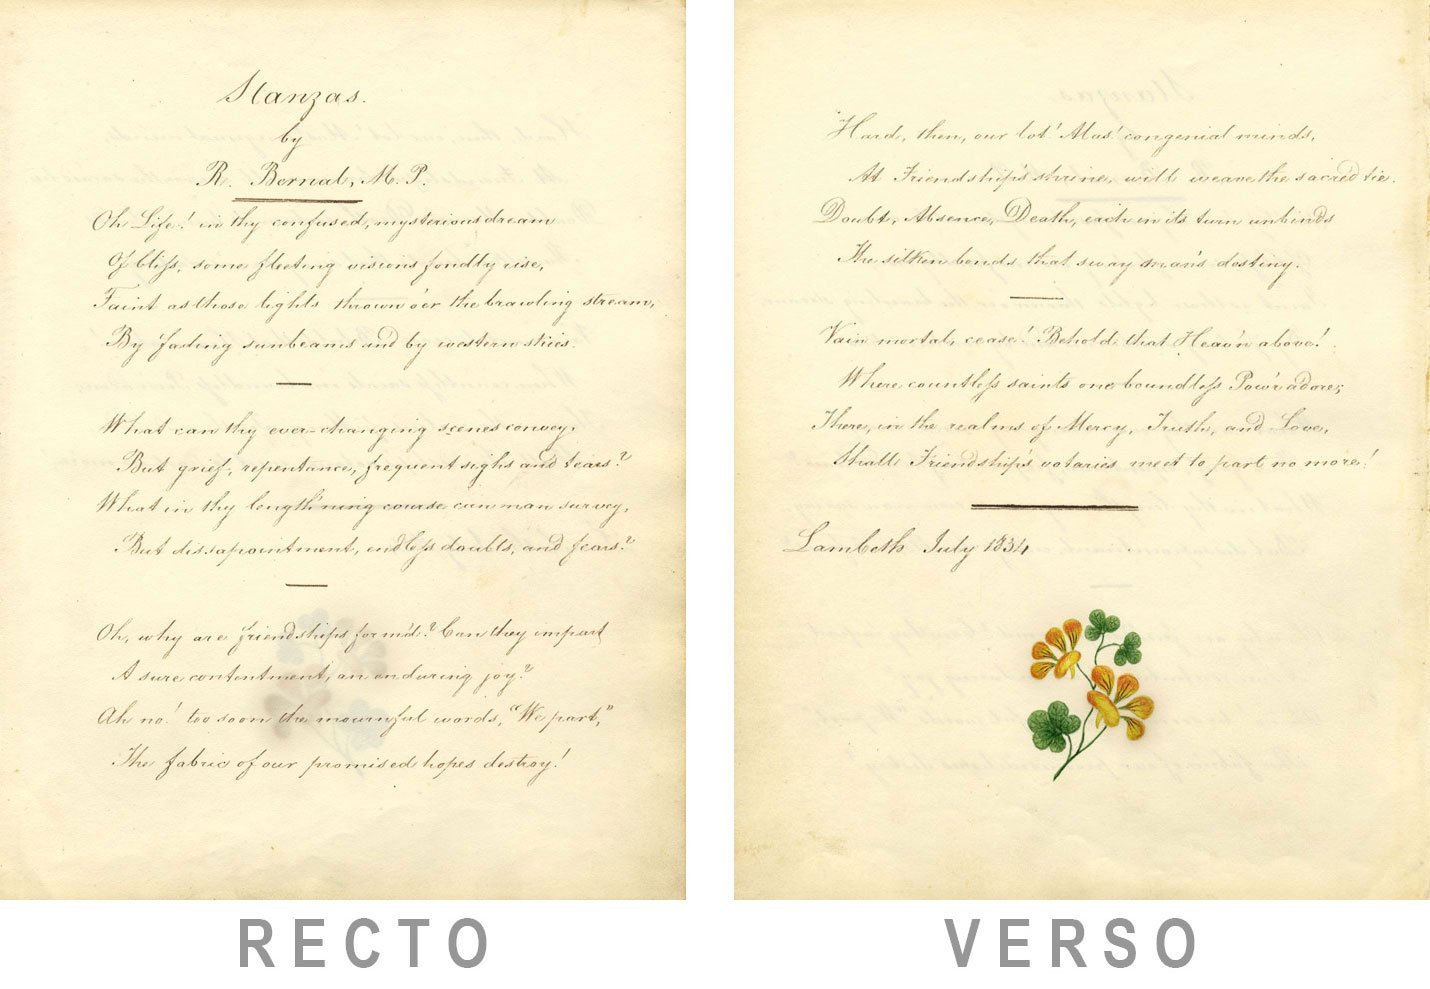 Stanzas.
by
R. Bernal, M. P.
Oh Life! in thy confused, mysterious dream
Of bliſs, some fleeting visions fondly rise,
Faint as those lights thrown o'er the brawling stream,
By fading sunbeams and by western skies.
What can thy ever-changing scenes convey,
But grief, repentance, frequent sighs and tears?
What in thy length'ning course can man survey,
But dissapointment, endleſs doubts, and fears?
Oh, why are friendships form'd? Can they impart
A sure contentment, an enduring joy?
Ah no! too soon the mournful words, "We part,"
The fabric of our promised hopes destroy!
Hard, then, our lot! Alas! congenial minds,
At Friendship's shrine, will weave the sacred tie.
Doubt, Absence, Death, each in its turn unbinds
The silken bonds that sway man's destiny.
Vain mortal, cease! Behold that Heav'n above!
Where countleſs saints one boundleſs Pow'r adore;
There, in the realms of Mercy, Truth, and Love,
Shall Friendship's votaries meet to part no more!
Lambeth July 1834
RECTO
VERSO